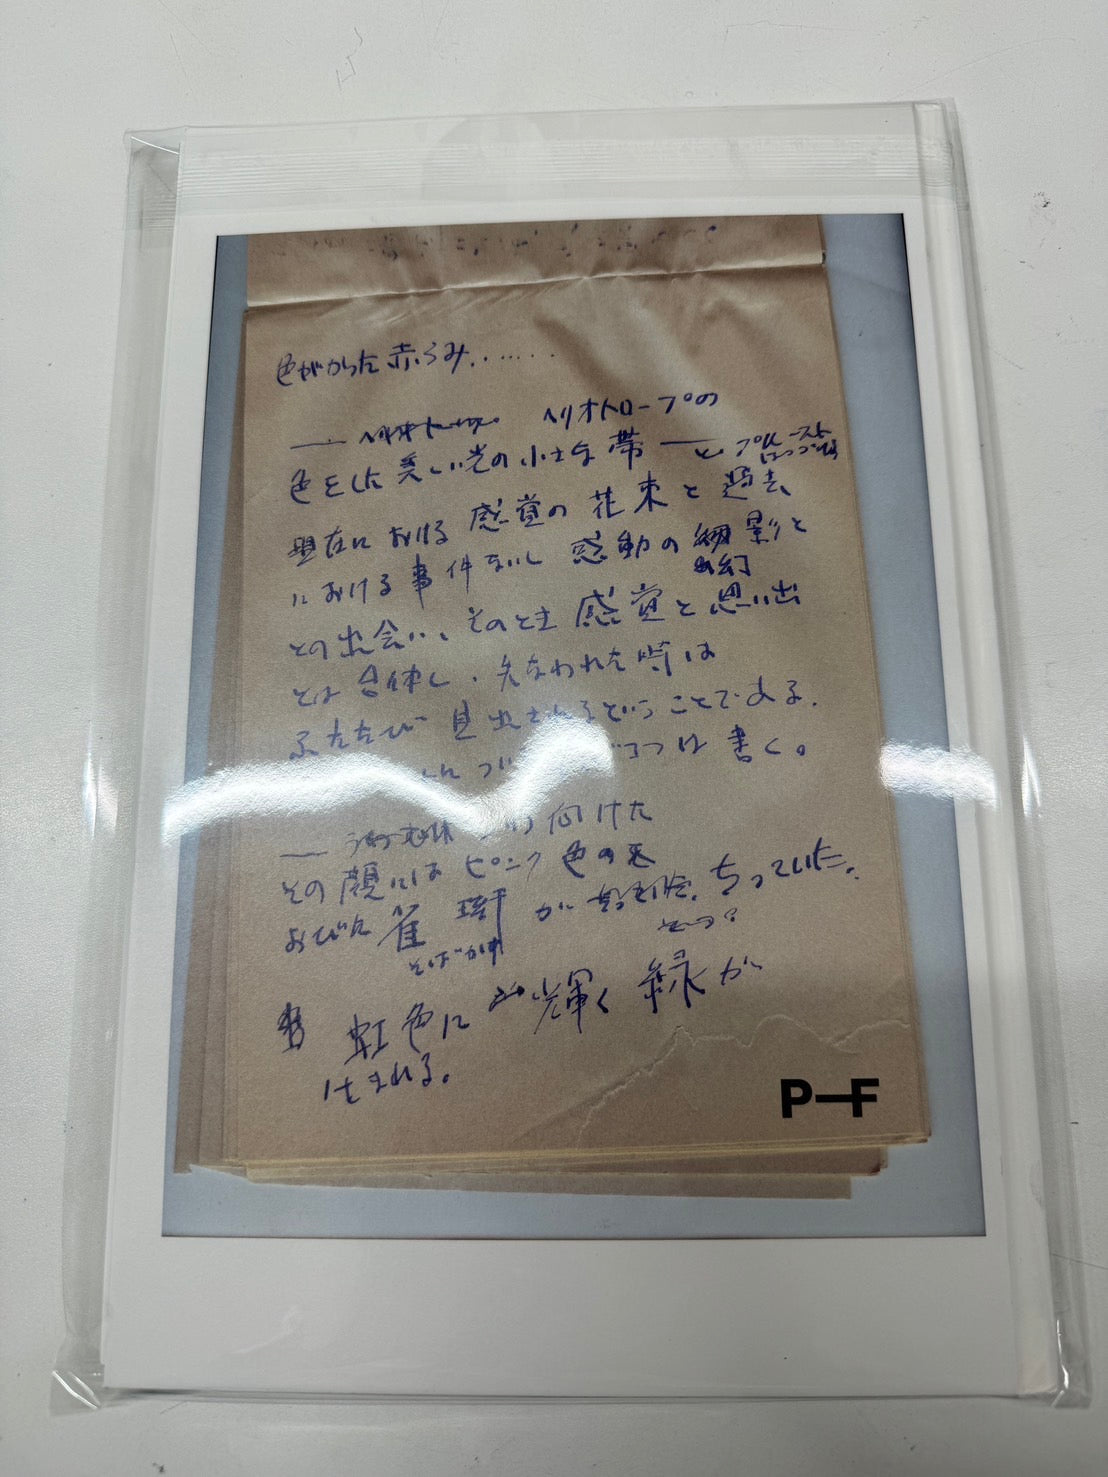 色がかった赤らみ.......
── ヘリオトロープの
色をした美しい光の小さな帯 ── と、プルースト
はつづける
現在における感覚の花束と過去
における事件ないし感動の幻影と
との出会い、そのとき感覚と思い出
とは合体し、失なわれた時は
ふたたび見出されるということである.
は書く。
── 向けた
その顔にはピンク色の
おびた雀斑がちっていた。
そばかす
虹色に輝く緑が
生まれる。
P—F